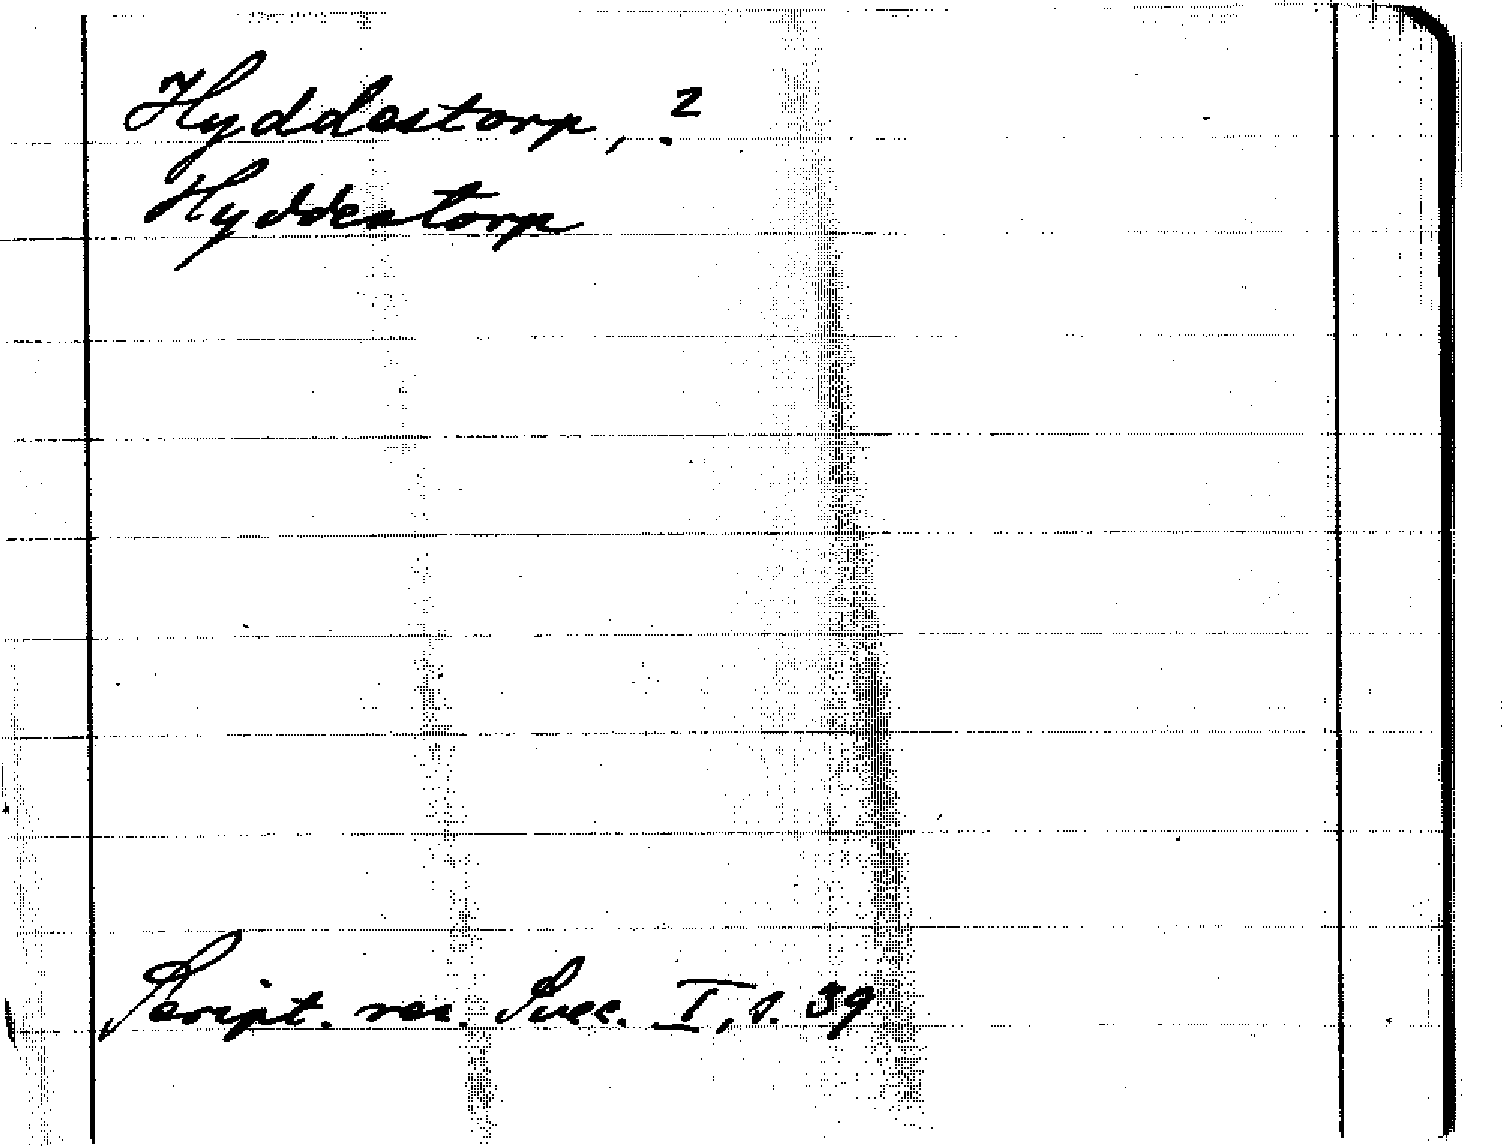 Hyddestorp, ?
Hyddestorp
Script. rer. Svec. I, s. 39